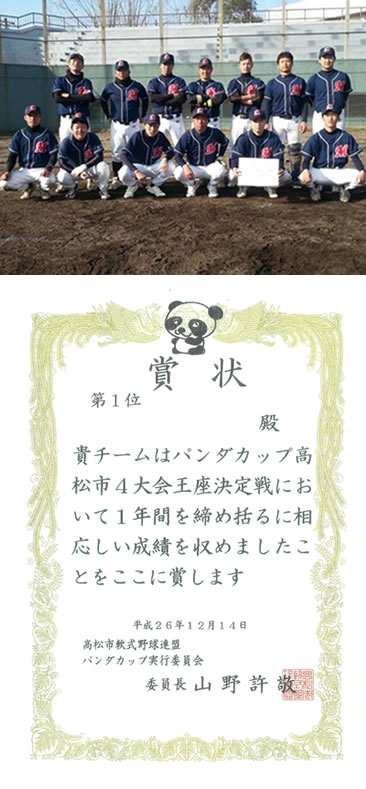 賞状
第1位
殿
貴チームはパンダカップ高
松市4大会王座決定戦にお
いて1年間を締め括るに相
応しい成績を収めましたこ
とをここに賞します
平成26年12月14日
高松市軟式野球連盟
パンダカップ実行委員会
委員長 山野許敬